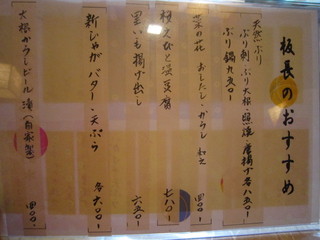 板長のおすすめ
天然ぶり
ぶり刺・ぶり大根・照焼・唐揚げ 各八五〇-
ぶり鍋九五〇-
菜の花 おしたし・からし和え 四〇〇-
板さんひと口豆腐 七八〇-
里いも揚げ出し 六五〇-
新じゃが バター・天ぷら 各六〇〇-
大根からしビール漬(自家製) 四〇〇-